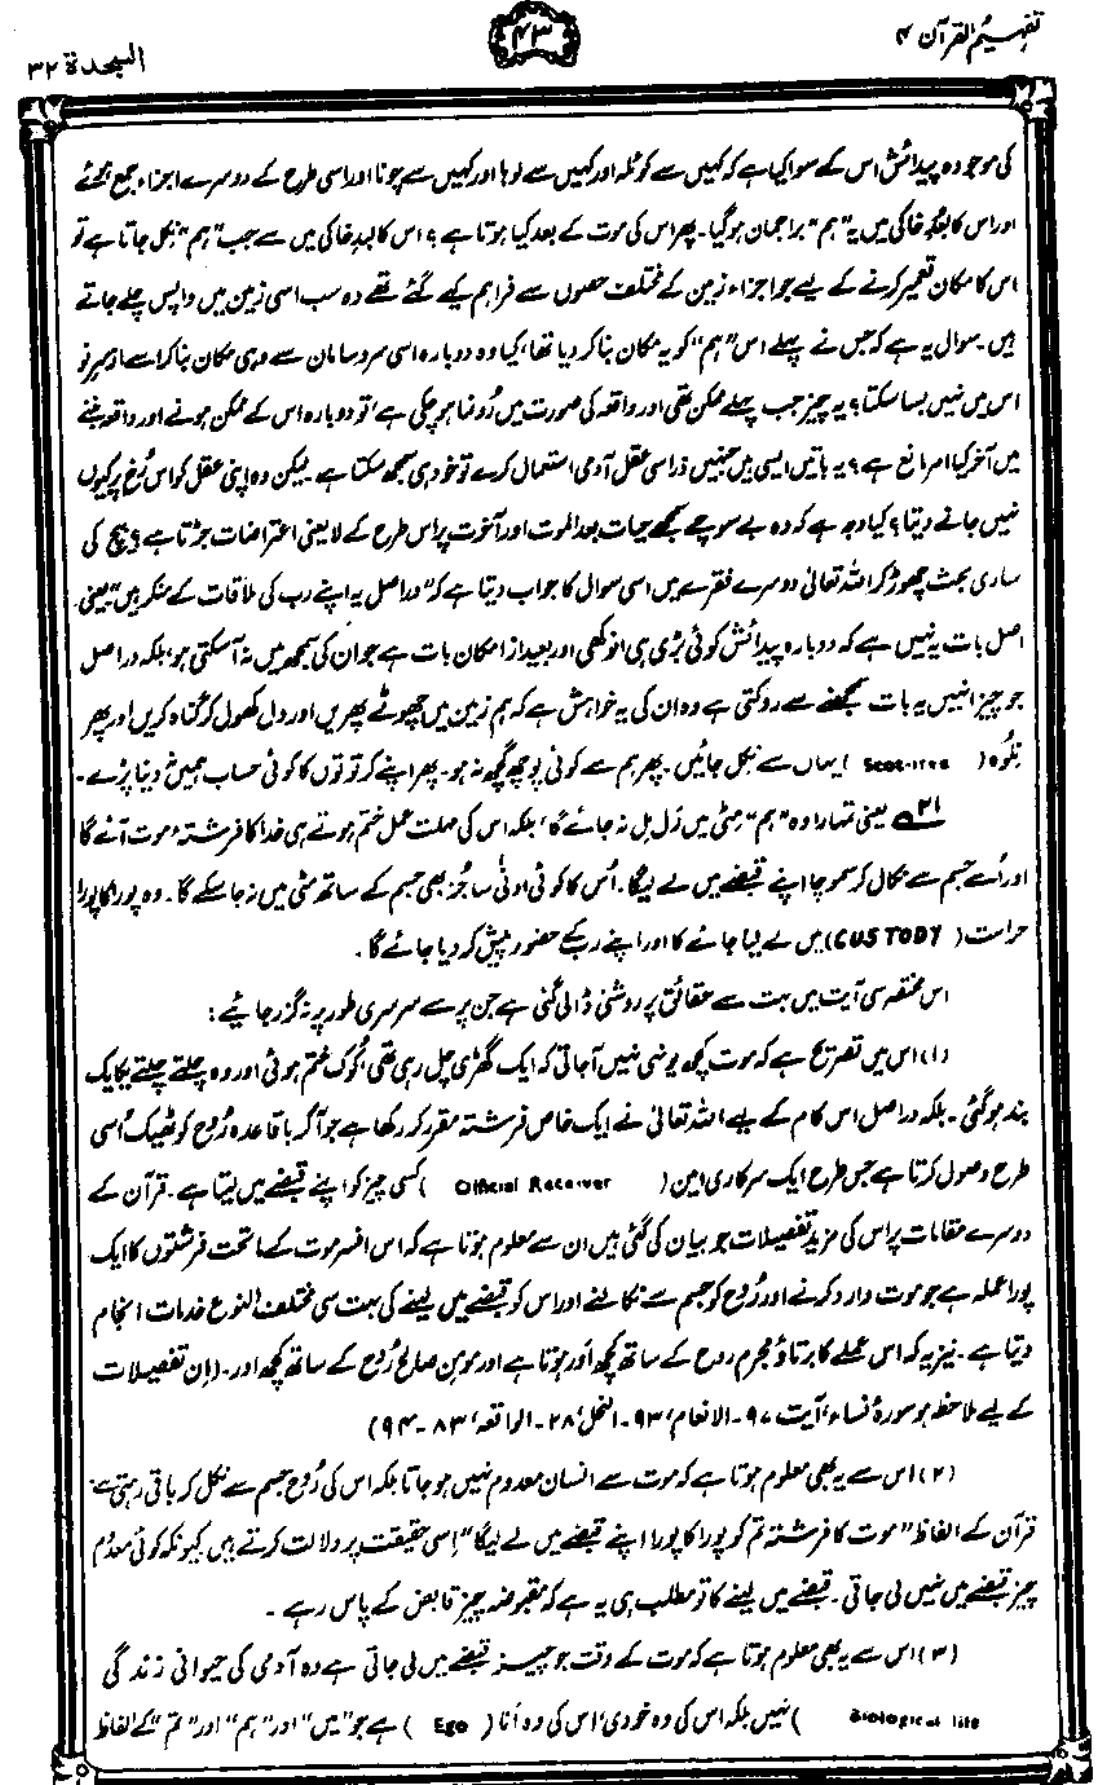 تفہیم القرآن ۴
۴۳
السجدۃ ۳۲
کی موجودہ پیدائش اس کے سوا کیا ہے کہ کہیں سے کوئلہ اور کہیں سے لوہا اور کہیں سے چونا اور اسی طرح کے دوسرے اجزاء جمع ہوئے
اور اس کالبُدِ خاکی میں یہ "ہم" براجمان ہو گیا۔ پھر اس کی موت کے بعد کیا ہوتا ہے؟ اس کالبدِ خاکی میں سے جب "ہم" نکل جاتا ہے تو
اس کا مکان تعمیر کرنے کے لیے جو اجزاء زمین کے مختلف حصوں سے فراہم کیے گئے تھے وہ سب اسی زمین میں واپس چلے جاتے
ہیں۔ سوال یہ ہے کہ جس نے پہلے اس "ہم" کو یہ مکان بنا کر دیا تھا، کیا وہ دوبارہ اسی سروسامان سے وہی مکان بنا کر اسے ازسرِنو
اس میں نہیں بسا سکتا؟ یہ چیز جب پہلے ممکن تھی اور واقعہ کی صورت میں رُونما ہو چکی ہے، تو دوبارہ اس کے ممکن ہونے اور واقعہ بننے
میں آخر کیا امر مانع ہے؟ یہ باتیں ایسی ہیں جنہیں ذرا سی عقل آدمی استعمال کرے تو خود ہی سمجھ سکتا ہے۔ لیکن وہ اپنی عقل کو اس رُخ پر کیوں
نہیں جانے دیتا؟ کیا وجہ ہے کہ وہ بے سوچے سمجھے حیات بعد الموت اور آخرت پر اس طرح کے لایعنی اعتراضات جڑتا ہے؟ بیچ کی
ساری بحث چھوڑ کر اللہ تعالیٰ دوسرے فقرے میں اسی سوال کا جواب دیتا ہے کہ "دراصل یہ اپنے رب کی ملاقات کے منکر ہیں" یعنی
اصل بات یہ نہیں ہے کہ دوبارہ پیدائش کوئی بڑی ہی انوکھی اور بعید از امکان بات ہے جو ان کی سمجھ میں نہ آ سکتی ہو، بلکہ دراصل
جو چیز انہیں یہ بات سمجھنے سے روکتی ہے وہ ان کی یہ خواہش ہے کہ ہم زمین میں چھوٹے پھریں اور دل کھول کر گناہ کریں اور پھر
نِلُوہ ( Scot-free ) یہاں سے نکل جائیں۔ پھر ہم سے کوئی پوچھ گچھ نہ ہو۔ پھر اپنے کرتوتوں کا کوئی حساب ہمیں نہ دینا پڑے۔
۲۱؎ یعنی تمہارا وہ "ہم" مٹی میں رَل مِل نہ جائے گا، بلکہ اس کی مہلتِ عمل ختم ہوتے ہی خدا کا فرشتۂ موت آئے گا
اور اُسے جسم سے نکال کر سموچا اپنے قبضے میں لے لیگا۔ اُس کا کوئی ادنیٰ سا جُز بھی جسم کے ساتھ مٹی میں نہ جا سکے گا۔ وہ پورا کا پورا
حراست ( CUSTODY ) میں لے لیا جائے گا اور اپنے رب کے حضور پیش کر دیا جائے گا۔
اس مختصر سی آیت میں بہت سے حقائق پر روشنی ڈالی گئی ہے جن پر سے سرسری طور پر نہ گزر جائیے:
(۱) اس میں تصریح ہے کہ موت کچھ یونہی نہیں آ جاتی کہ ایک گھڑی چل رہی تھی، کُوک ختم ہوئی اور وہ چلتے چلتے یکایک
بند ہو گئی۔ بلکہ دراصل اس کام کے لیے اللہ تعالیٰ نے ایک خاص فرشتہ مقرر کر رکھا ہے جو آ کر باقاعدہ رُوح کو ٹھیک اُسی
طرح وصول کرتا ہے جس طرح ایک سرکاری امین ( Official Receiver ) کسی چیز کو اپنے قبضے میں لیتا ہے۔ قرآن کے
دوسرے مقامات پر اس کی مزید تفصیلات جو بیان کی گئی ہیں ان سے معلوم ہوتا ہے کہ اس افسرِ موت کے ماتحت فرشتوں کا ایک
پورا عملہ ہے جو موت وارد کرنے اور رُوح کو جسم سے نکالنے اور اس کو قبضے میں لینے کی بہت سی مختلف النوع خدمات انجام
دیتا ہے۔ نیز یہ کہ اس عملے کا برتاؤ مجرم روح کے ساتھ کچھ اَور ہوتا ہے اور مومنِ صالح رُوح کے ساتھ کچھ اور۔ (اِن تفصیلات
کے لیے ملاحظہ ہو سورۂ نساء، آیت ۹۷۔ الانعام، ۹۳۔ النحل، ۲۸۔ الواقعہ، ۸۳۔ ۹۴)
(۲) اس سے یہ بھی معلوم ہوتا ہے کہ موت سے انسان معدوم نہیں ہو جاتا بلکہ اس کی رُوح جسم سے نکل کر باقی رہتی ہے۔
قرآن کے الفاظ "موت کا فرشتہ تم کو پورا کا پورا اپنے قبضے میں لے لیگا" اِسی حقیقت پر دلالت کرتے ہیں کیونکہ کوئی معدُوم
چیز قبضے میں نہیں لی جاتی۔ قبضے میں لینے کا تو مطلب ہی یہ ہے کہ مقبوضہ چیز قابض کے پاس رہے۔
(۳) اس سے یہ بھی معلوم ہوتا ہے کہ موت کے وقت جو چیز قبضے میں لی جاتی ہے وہ آدمی کی حیوانی زندگی
Biological life ) نہیں بلکہ اس کی وہ خودی، اس کی وہ اَنا ( Ego ) ہے جو "میں" اور "ہم" اور "تم" کے الفاظ